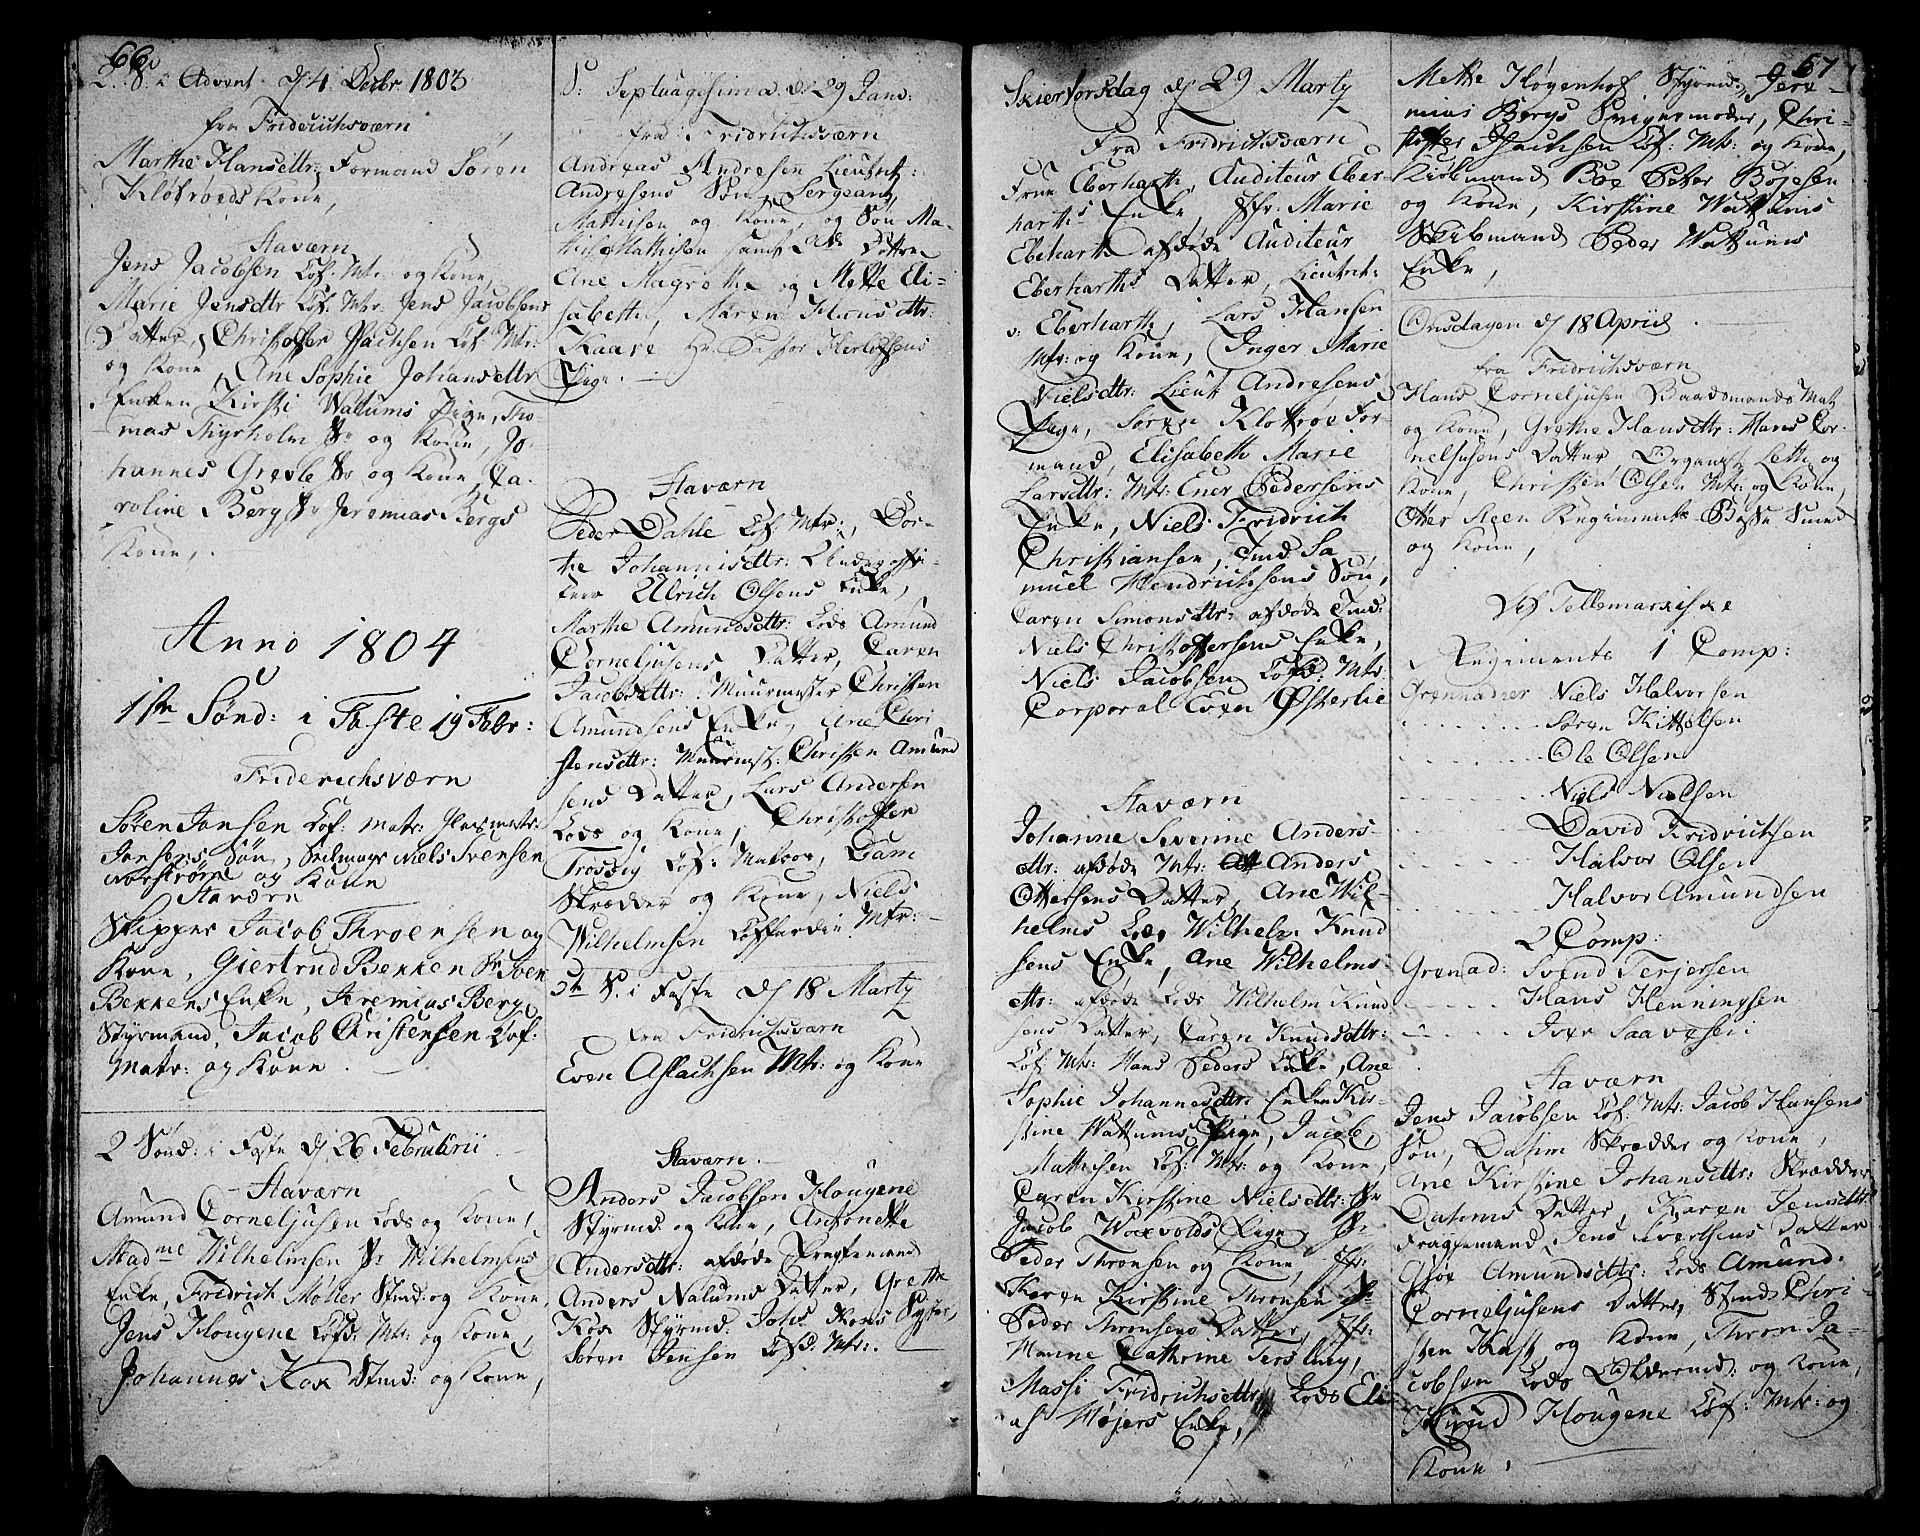 66
2. S. i Advent d 4 Decbr 1803
fra Friderichsværn
Marthe Hansdttr: Formand Søren
Kløfroeds Kone,
Staværn
Jens Jacobsen Cof: Mtr: og Kone,
Marie Jensdttr Cof: Mtr: Jens Jacobsens
Datter, Christoffer Isachsen Cof: Mtr:
og Kone, Ane Sophie Johansdttr
Enken Kirsti Watums Pige, Tho-
mas Thyrholm Sr og Kone, Jo-
hannes Greslé Sr og Kone, Ca-
roline Berg Sr Jeremias Bergs
Kone,
Anno 1804
1ste Sønd: i Faste 19 Febr:
Friderichsværn
Søren Jansen Cof: Matr: Glasmestr:
Jansens Søn, Seilmager Niels Svensen
Norstrøm og Kone
Staværn
Skipper Jacob Throensen og
Kone, Giertrud Bekken Sr Iver
Bekkens Enke, Jeremias Berg
Styrmand, Jacob Christensen Cof:
Matr: og Kone
2 Sønd: i Faste d 26 Februarii
Staværn
Amund Corneljusen Lods og Kone,
Madme Wilhelmsen Sr Wilhelmsens
Enke, Fridrich Møller Stmd: og Kone,
Jens Hougene Cofd: Mtr: og Kone,
Johannes Kox Stmd: og Kone,
S: Septuagesima d 29 Janr:
fra Fridrichsværn
Andreas Andresen Lieutnt:
Andresens Søn, Sergeant
Mathisen og Kone, og Søn Ma-
this Mathisen samt 2de Døttre
Ane Magrethe og Mette Eli-
sabeth, Maren Hansdttr:
Kaare Hr Pastor Hertofsens
Pige.
Staværn
Peder Dahle Cof: Mtr:, Dor-
the Johannisdttr: Underoffi-
ceer Ulrich Olsens Enke,
Marthe Amundsdttr: Lods Amund
Corneljusens Datter, Caren
Jacobsdttr: Muurmester Christen
Amundsens Enke, Ane Chri
stensdttr: Muurmest: Christen Amund
sens Datter, Lars Andersen
Lods og Kone, Christoffer
Trosvig Cof: Matros, Dam
Skrædder og Kone, Niels
Wilhelmsen Cofferdie Mtr:
5te S. i Faste d 18 Marty
fra Fridrichsværn
Even Aslachsen Mtr: og Kone
Staværn.
Anders Jacobsen Hougene
Styrmd: og Kone, Antonette
Andersdttr: afdøde Fragtemand
Anders Nalums Datter, Grethe
Kox Styrmd: Johs Koxs Syster,
Søren Jensen Cofd. Mtr:.
Skiertorsdag d 29 Marty
Fra Fridrichsværn
Frue Eberharth, Auditeur Eber-
harths Enke, Jfr: Marie
Eberharth afdøde Auditeur
Eberharths Datter, Lieutnt:
v: Eberharth, Lars Hansen
Mtr: og Kone, Inger Marie
Nielsdttr: Lieut Andresens
Pige, Søren Kløftrøe For-
mand, Elisabeth Marie
Larsdttr: Mtr: Ener Pedersens
Enke, Niels Fridrich
Christiansen, Tmd Sa
muel Hendrichsens Søn,
Caren Simonsdttr: afdøde Tmd:
Niels Christoffersens Enke,
Niels Jacobsen Cofd: Mtr:
Corporal Even Østerlie
Staværn
Johanne Severine Anders-
dttr: afdøde Mtr: Anders
Ottersens Datter, Ane Wil-
helms Lods Wilhelm Knud
sens Enke, Ane Wilhelms-
dttr: afdøde Lods Wilhelm Knud
sens Datter, Caren Knudsdttr:
Cof: Mtr: Hans Peders Enke, Ane
Sophie Johannesdttr: Enken Kir-
stine Wattums Pige, Jacob
Mathisen Cof: Mtr: og Kone,
Caren Kirstine Nielsdttr: Sr
Jacob Woxvolds Pige, Sr
Peder Thronsen og Kone, Jfr:
Karen Kirstine Thronsen Sr
Peder Thronsens Datter, Jfr:
Hanne Cathrine Terslung,
Massi Fridrichsdttr: Lods Eli-
as Højers Enke,
67
Mette Høgenhof Styrmd: Jere-
mias Bergs Svigermoder, Chri-
stoffer Isachsen Cof: Mtr: og Kone,
Kirkemand Boe Peter Bojesen
og Kone, Kirstine Wattums
Skibmand Peder Wattums
Enke,
Onsdagen d 18 April
fra Fridrichsværn
Hans Corneljusen Baadsmands Mat
og Kone, Grethe Hansdttr: Hans Cor-
neljusens Datter, Organist Leth og
Kone, Christen Olsen Mtr: og Kone,
Otter Steen Regiments Bøsse Smed
og Kone,
Ved Tellemarkiske
Regiments 1 Comp:
Grenadeer Niels Halvorsen
Søren Kittelsen
Ole Olsen
Niels Nielsen
David Fridrichsen
Halvor Olsen
Halvor Amundsen
2 Comp:
Grenad: Svend Terjersen
Hans Henningsen
Iver Saavesen
Staværn
Jens Jacobsen Cof: Mtr: Jacob Hansens
Søn, Dasim Skrædder og Kone,
Ane Kirstine Johansdttr: Skrædder
Datems Datter, Karen Jensdttr
Fragtemand Jens Sivertsens Datter
Gjør Amundsdttr: Lods Amund
Corneljusens Datter, Stmd Chri-
sten Kast og Kone, Thron Ja-
cobsen Lods Oldermd: og Kone,
Knud Hougene Cof: Mtr: og
Kone,